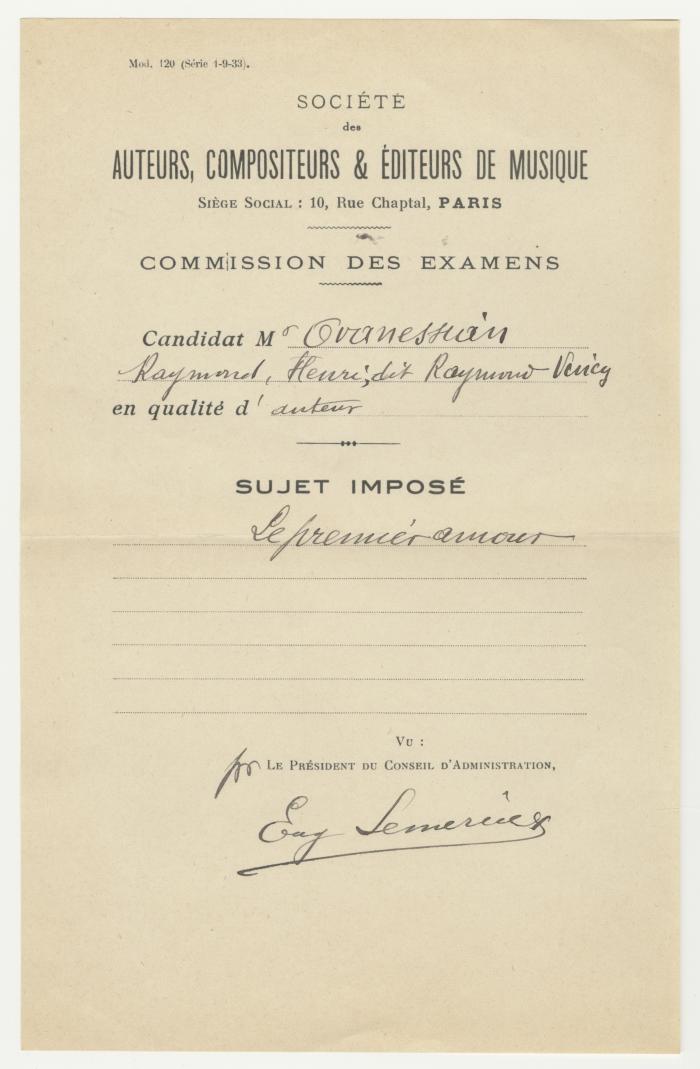 Mod. 120 (Série 1-9-33).
SOCIÉTÉ
des
AUTEURS, COMPOSITEURS & ÉDITEURS DE MUSIQUE
SIÈGE SOCIAL : 10, Rue Chaptal, PARIS
COMMISSION DES EXAMENS
Candidat Mr Ovanessian
Raymond, Henri, dit Raymond Vincy
en qualité d' auteur
SUJET IMPOSÉ
Le premier amour
VU :
pr LE PRÉSIDENT DU CONSEIL D'ADMINISTRATION,
Eug Lemercier